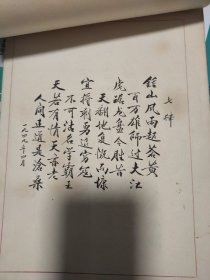 七律
钟山风雨起苍黄
百万雄师过大江
虎踞龙盘今胜昔
天翻地复慨而慷
宜将剩勇追穷寇
不可沽名学霸王
天若有情天亦老
人间正道是沧桑
一九四九年四月